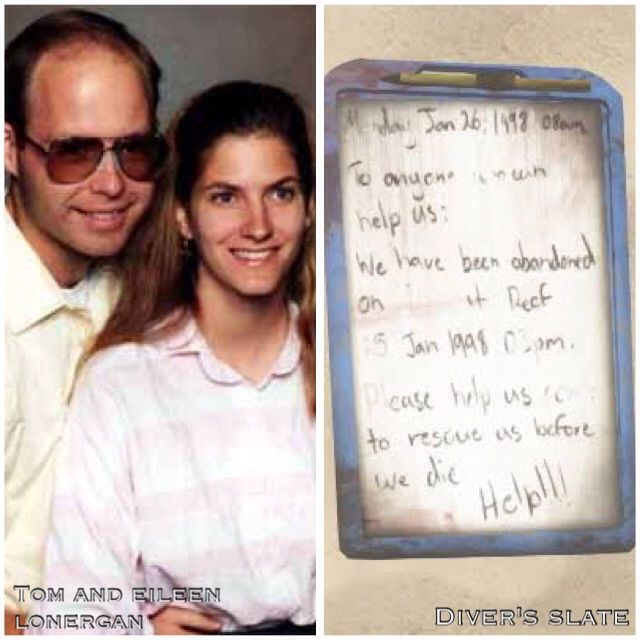 TOM AND EILEEN
LONERGAN
Jan 26, 1998 08am
To anyone can
help us:
We have been abandoned
on Reef
Jan 1998 03pm.
Please help us
to rescue us before
we die
Help!!!
DIVER'S SLATE